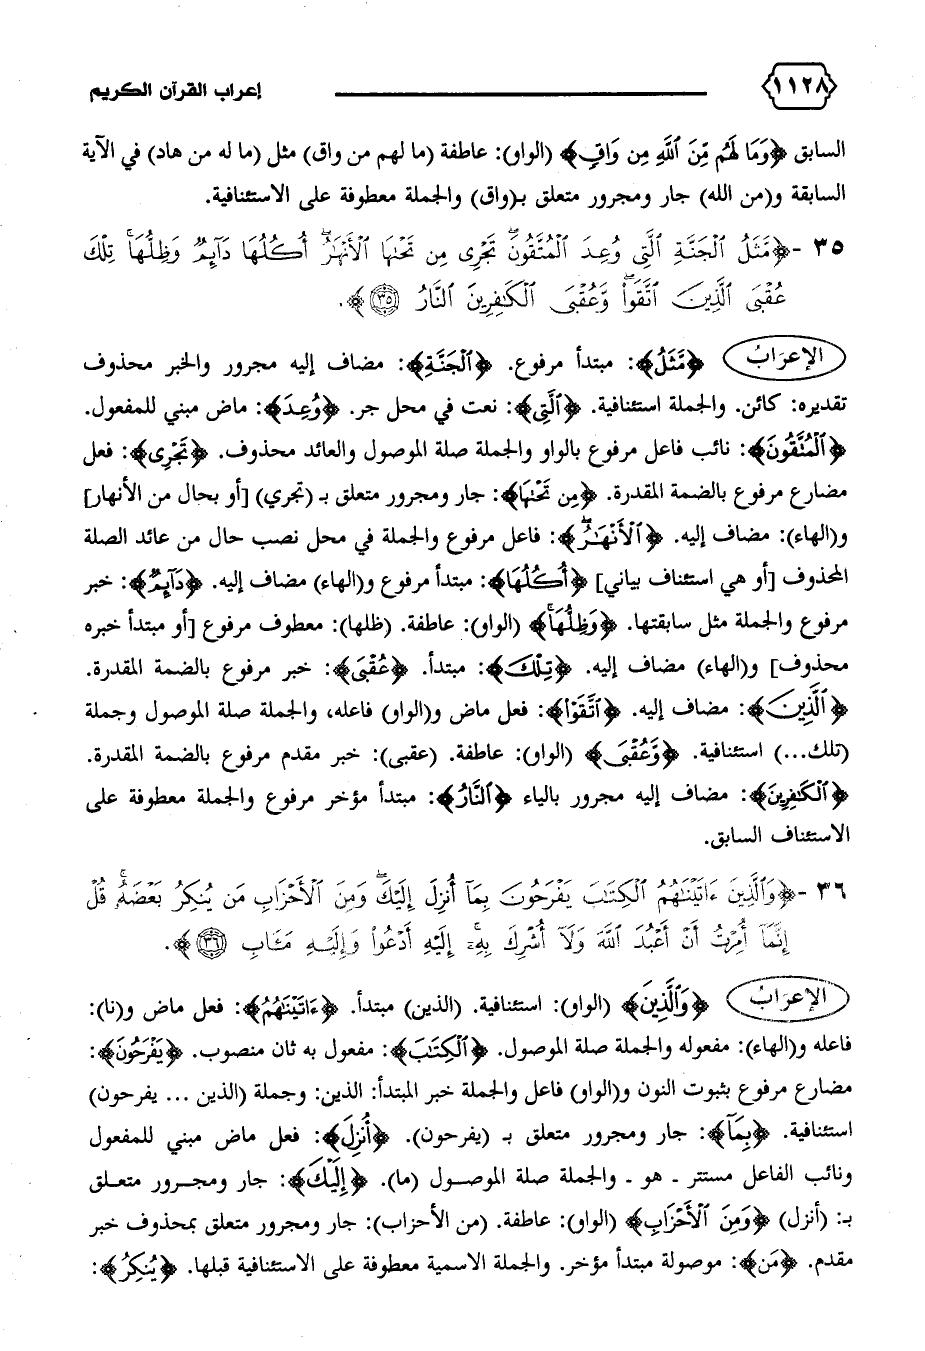 ١١٢٨ إعراب القرآن الكريم
السابق ﴿وَمَا لَهُم مِّنَ ٱللَّهِ مِن وَاقٍ﴾ (الواو): عاطفة (ما لهم من واق) مثل (ما له من هاد) في الآية
السابقة و(من الله) جار ومجرور متعلق بـ(واق) والجملة معطوفة على الاستئنافية.
٣٥ -﴿مَّثَلُ ٱلْجَنَّةِ ٱلَّتِى وُعِدَ ٱلْمُتَّقُونَ ۖ تَجْرِى مِن تَحْتِهَا ٱلْأَنْهَٰرُ ۖ أُكُلُهَا دَآئِمٌ وَظِلُّهَا ۚ تِلْكَ
عُقْبَى ٱلَّذِينَ ٱتَّقَوا۟ ۖ وَّعُقْبَى ٱلْكَٰفِرِينَ ٱلنَّارُ ٣٥﴾.
الإعرَابُ ﴿مَّثَلُ﴾: مبتدأ مرفوع. ﴿ٱلْجَنَّةِ﴾: مضاف إليه مجرور والخبر محذوف
تقديره: كائن. والجملة استئنافية. ﴿ٱلَّتِى﴾: نعت في محل جر. ﴿وُعِدَ﴾: ماض مبني للمفعول.
﴿ٱلْمُتَّقُونَ﴾: نائب فاعل مرفوع بالواو والجملة صلة الموصول والعائد محذوف. ﴿تَجْرِى﴾: فعل
مضارع مرفوع بالضمة المقدرة. ﴿مِن تَحْتِهَا﴾: جار ومجرور متعلق بـ (تجري) [أو بحال من الأنهار]
و(الهاء): مضاف إليه. ﴿ٱلْأَنْهَٰرُ ۖ﴾: فاعل مرفوع والجملة في محل نصب حال من عائد الصلة
المحذوف [أو هي استئناف بياني] ﴿أُكُلُهَا﴾: مبتدأ مرفوع و(الهاء) مضاف إليه. ﴿دَآئِمٌ﴾: خبر
مرفوع والجملة مثل سابقتها. ﴿وَظِلُّهَا ۚ﴾ (الواو): عاطفة. (ظلها): معطوف مرفوع [أو مبتدأ خبره
محذوف] و(الهاء) مضاف إليه. ﴿تِلْكَ﴾: مبتدأ. ﴿عُقْبَى﴾: خبر مرفوع بالضمة المقدرة.
﴿ٱلَّذِينَ﴾: مضاف إليه. ﴿ٱتَّقَوا۟﴾: فعل ماض و(الواو) فاعله، والجملة صلة الموصول وجملة
(تلك...) استئنافية. ﴿وَّعُقْبَى﴾ (الواو): عاطفة. (عقبى): خبر مقدم مرفوع بالضمة المقدرة.
﴿ٱلْكَٰفِرِينَ﴾: مضاف إليه مجرور بالياء ﴿ٱلنَّارُ﴾: مبتدأ مؤخر مرفوع والجملة معطوفة على
الاستئناف السابق.
٣٦ -﴿وَٱلَّذِينَ ءَاتَيْنَٰهُمُ ٱلْكِتَٰبَ يَفْرَحُونَ بِمَآ أُنزِلَ إِلَيْكَ ۖ وَمِنَ ٱلْأَحْزَابِ مَن يُنكِرُ بَعْضَهُۥ ۚ قُلْ
إِنَّمَآ أُمِرْتُ أَنْ أَعْبُدَ ٱللَّهَ وَلَآ أُشْرِكَ بِهِۦٓ ۚ إِلَيْهِ أَدْعُوا۟ وَإِلَيْهِ مَـَٔابِ ٣٦﴾.
الإعرَابُ ﴿وَٱلَّذِينَ﴾ (الواو): استئنافية. (الذين) مبتدأ. ﴿ءَاتَيْنَٰهُمُ﴾: فعل ماض و(نا):
فاعله و(الهاء): مفعوله والجملة صلة الموصول. ﴿ٱلْكِتَٰبَ﴾: مفعول به ثان منصوب. ﴿يَفْرَحُونَ﴾:
مضارع مرفوع بثبوت النون و(الواو) فاعل والجملة خبر المبتدأ: الذين: وجملة (الذين ... يفرحون)
استئنافية. ﴿بِمَآ﴾: جار ومجرور متعلق بـ (يفرحون). ﴿أُنزِلَ﴾: فعل ماض مبني للمفعول
ونائب الفاعل مستتر ـ هو ـ والجملة صلة الموصول (ما). ﴿إِلَيْكَ﴾: جار ومجرور متعلق
بـ: (أنزل) ﴿وَمِنَ ٱلْأَحْزَابِ﴾ (الواو): عاطفة. (من الأحزاب): جار ومجرور متعلق بمحذوف خبر
مقدم. ﴿مَن﴾: موصولة مبتدأ مؤخر. والجملة الاسمية معطوفة على الاستئنافية قبلها. ﴿يُنكِرُ﴾: